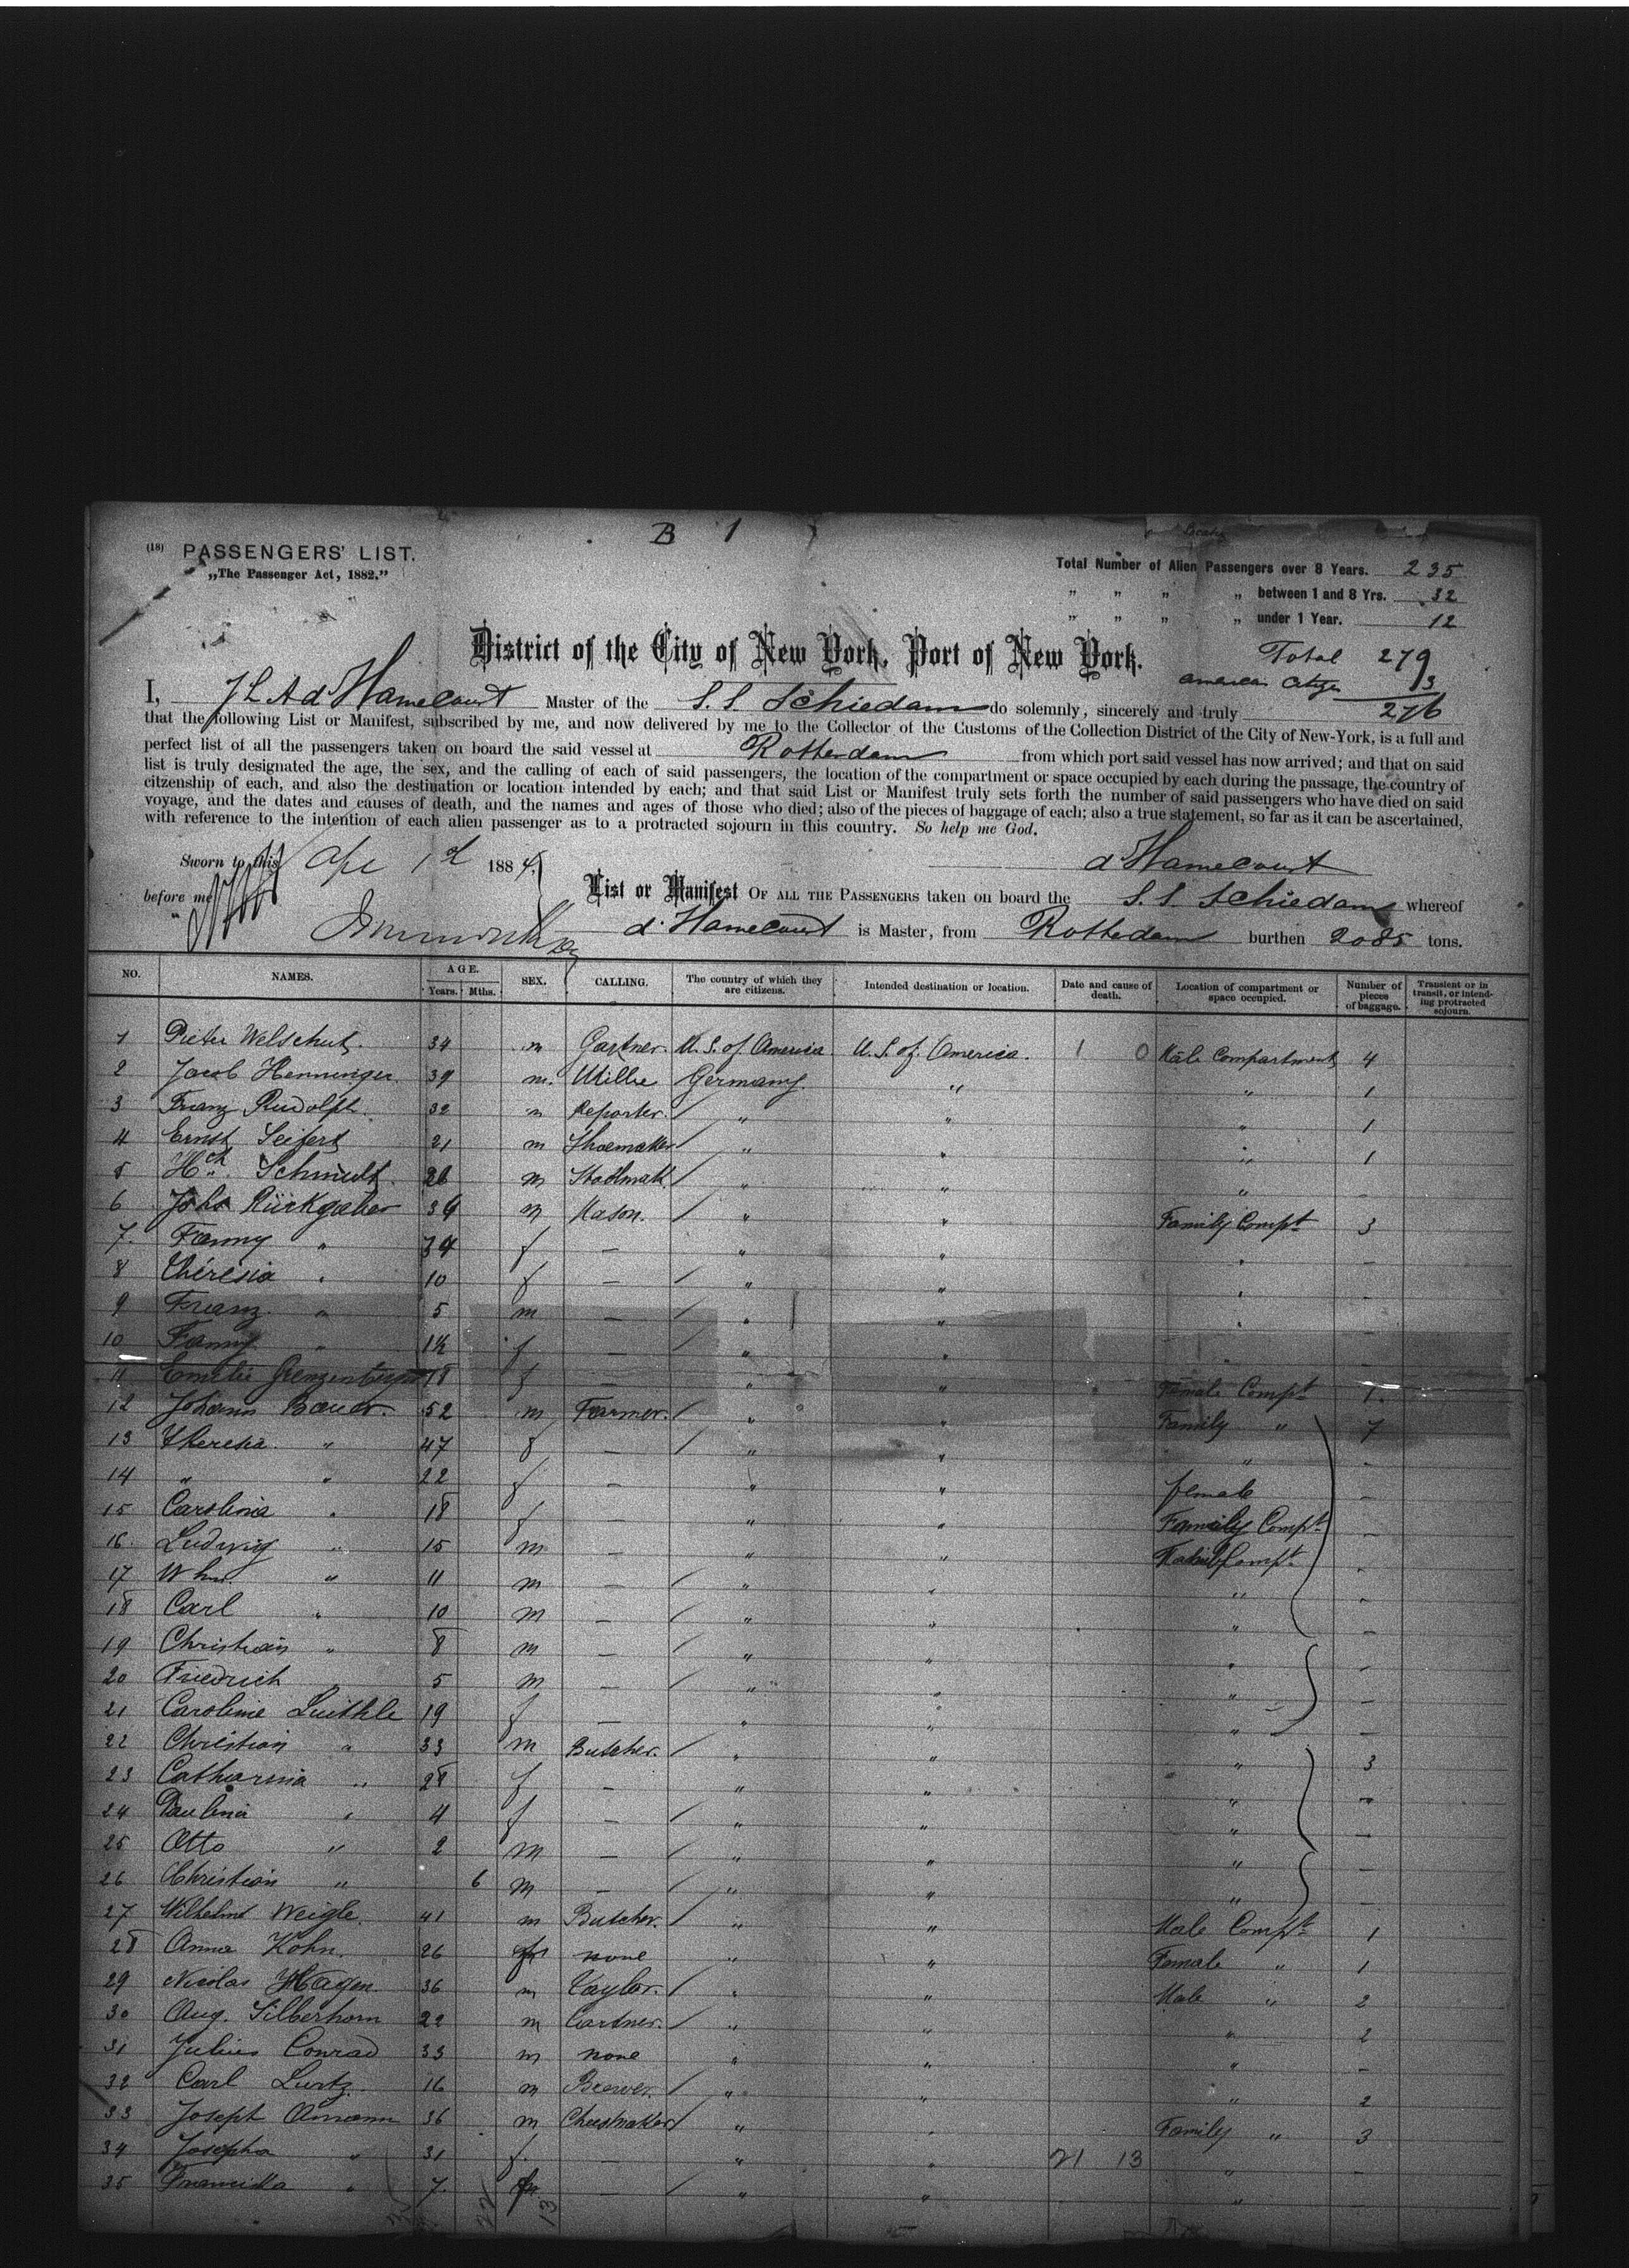 B 1
(18) PASSENGERS' LIST.
„The Passenger Act, 1882."
Total Number of Alien Passengers over 8 Years. 235
„ „ „ „ between 1 and 8 Yrs. 32
„ „ „ „ under 1 Year. 12
District of the City of New York, Port of New York.
Total 279
american Citizen 3
276
I, J L A d'Hamecourt Master of the S.S. Schiedam do solemnly, sincerely and truly
that the following List or Manifest, subscribed by me, and now delivered by me to the Collector of the Customs of the Collection District of the City of New-York, is a full and
perfect list of all the passengers taken on board the said vessel at Rotterdam from which port said vessel has now arrived; and that on said
list is truly designated the age, the sex, and the calling of each of said passengers, the location of the compartment or space occupied by each during the passage, the country of
citzenship of each, and also the destination or location intended by each; and that said List or Manifest truly sets forth the number of said passengers who have died on said
voyage, and the dates and causes of death, and the names and ages of those who died; also of the pieces of baggage of each; also a true statement, so far as it can be ascertained,
with reference to the intention of each alien passenger as to a protracted sojourn in this country. So help me God.
Sworn to this Apr 1st 1884
d'Hamecourt
before me
List or Manifest OF ALL THE PASSENGERS taken on board the S.S. Schiedam whereof
d'Hamecourt is Master, from Rotterdam burthen 2085 tons.
NO. NAMES. AGE. Years. Mths. SEX. CALLING. The country of which they are citizens. Intended destination or location. Date and cause of death. Location of compartment or space occupied. Number of pieces of baggage. Transient or in transit, or intending protracted sojourn.
1 Pieter Welschut. 34 m Gartner. U.S. of America U.S. of America. 1 0 Male Compartment 4
2 Jacob Henninger. 39 m. Miller Germany. „ „ 1
3 Franz Rudolph. 32 m Reporter. / „ „ „ 1
4 Ernst Seifert 21 m Shoemaker / „ „ „ 1
5 Hch. Schmidt. 26 m / „ „ „ -
6 Johs Rückgaber 39 m Mason. / „ „ Family Compt 3
7. Fanny „ 34 f — „ „ „ -
8 Theresia „ 10 f — / „ „ „ -
9 Franz „ 5 m — / „ „ „ -
10 Fanny „ 1½ f — / „ „ -
11 Emilie 18 f — „ „ Female Compt 1.
12 Johann Bauer. 52 m Farmer. / „ „ Family „ 7
13 Theresia. „ 47 f — / „ „ „ -
14 „ „ 22 f — „ „ female -
15 Carolina „ 18 f — „ „ Family Compt -
16. Ludwig „ 15 m — „ „ Compt -
17 Whm. „ 11 m — / „ „ „ -
18 Carl „ 10 m — / „ „ „ -
19 Christian „ 8 m — / „ „ „ -
20 Friedrich 5 m — / „ „ „ -
21 Caroline Luithle 19 f — „ „ „ -
22 Christian „ 33 m Butcher. / „ „ „ 3
23 Catharina „ 28 f — „ „ „ -
24 Paulina „ 4 f — / „ „ „ -
25 Otto „ 2 m — / „ „ „ -
26 Christian „ 6 m — / „ „ „ -
27 Wilhelm Weigle. 41 m Butcher. / „ „ Male Compt 1
28 Anna Kohn. 26 f none „ „ Female „ 1
29 Nicolas Hagen. 36 m Taylor. / „ „ Male „ 2
30 Aug. Silberhorn 22 m Gartner. / „ „ „ 2
31 Julius Conrad 33 m none „ „ „ -
32 Carl Lurtz. 16 m Brewer. / „ „ „ 2
33 Joseph Amann 36 m / „ „ Family „ 3
34 Josepha „ 31 f. — „ „ 21 13 „ -
35 „ 7. f — / „ „ „ -
22 13